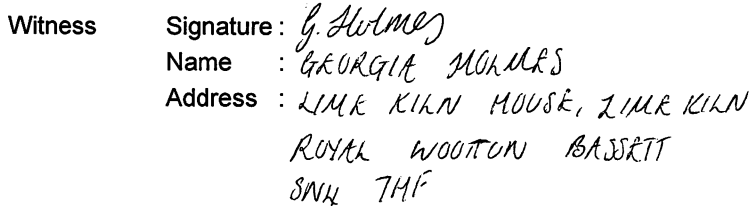 Witness Signature : G. Holmes
Name : GEORGIA HOLMES
Address : LIME KILN HOUSE, LIME KILN
ROYAL WOOTTON BASSETT
SN4 7HF